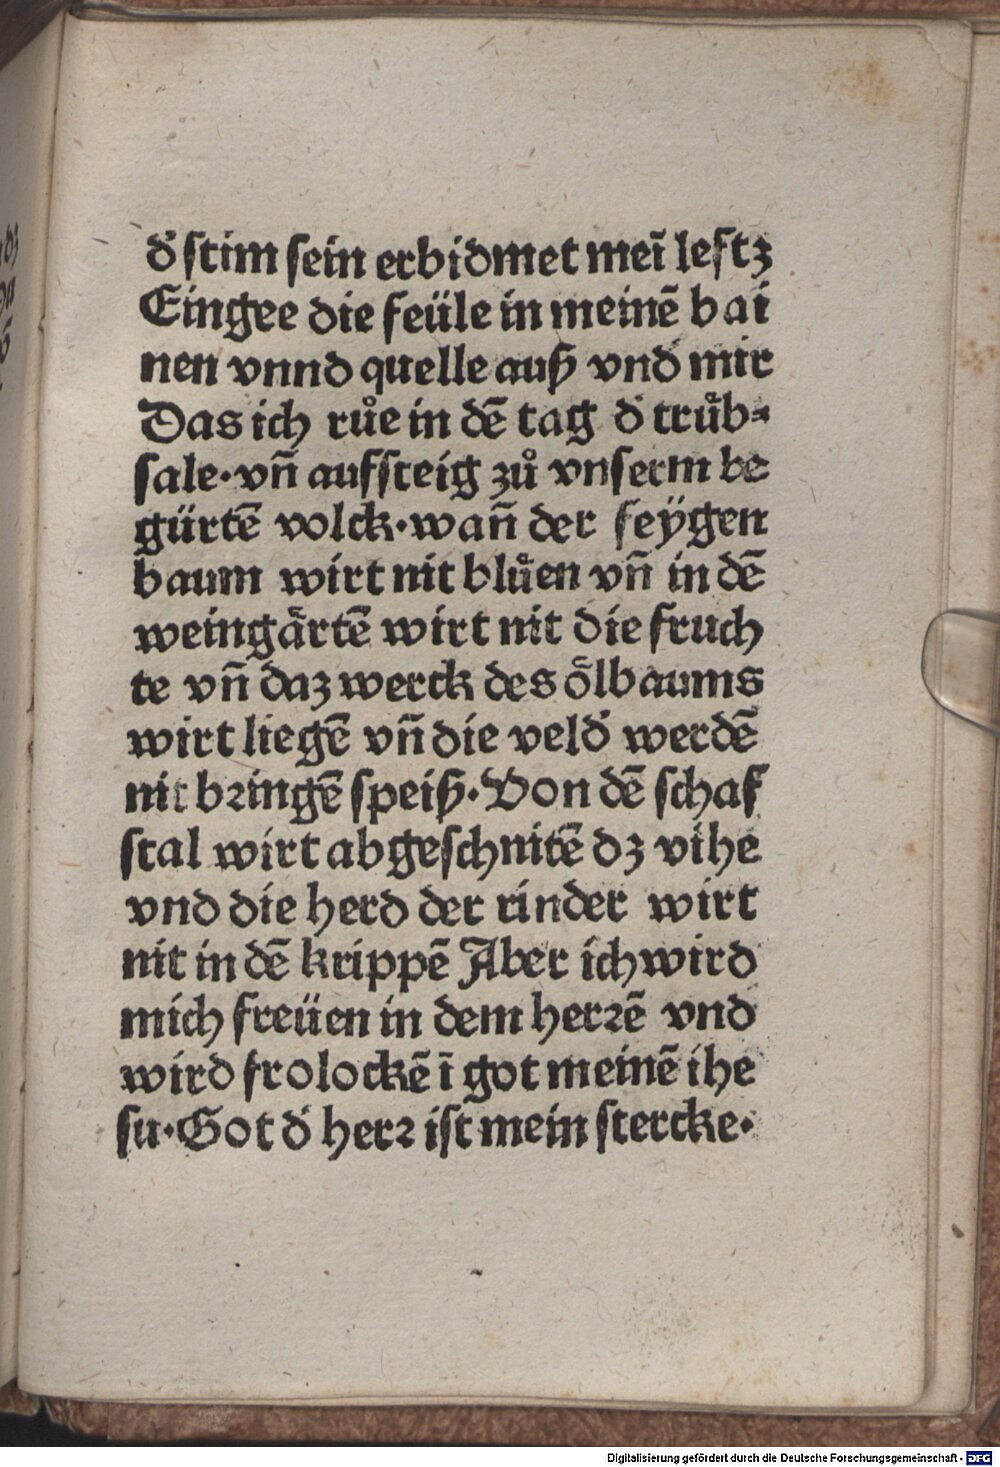 dẜ stim sein erbidmet meī leftʒ
Eingee die feüle in meinē bai
nen vnnd quelle auß vnd mir
Das ich růe in dē tag d' trůb⸗
sale·vn̄ aufsteig zů vnserm be
gürtē volck·wan̄ der feÿgen
baum wirt nit blůen vn̄ in dē
weingaͤrtē wirt nit die fruch
te vn̄ daʒ werck des oͤlbaums
wirt liegē vn̄ die veld' werdē
nit bꝛingē speiß·Von dē schaf
stal wirt abgeschnitē dʒ vihe
vnd die herd der rinder wirt
nit in dē krippē Aber ich wird
mich freüen in dem herꝛē vnd
wird frolockē ī got meinē ihe
su·Got d' herꝛ ist mein stercke·
Digitalisierung gefördert durch die Deutsche Forschungsgemeinschaft - DFG